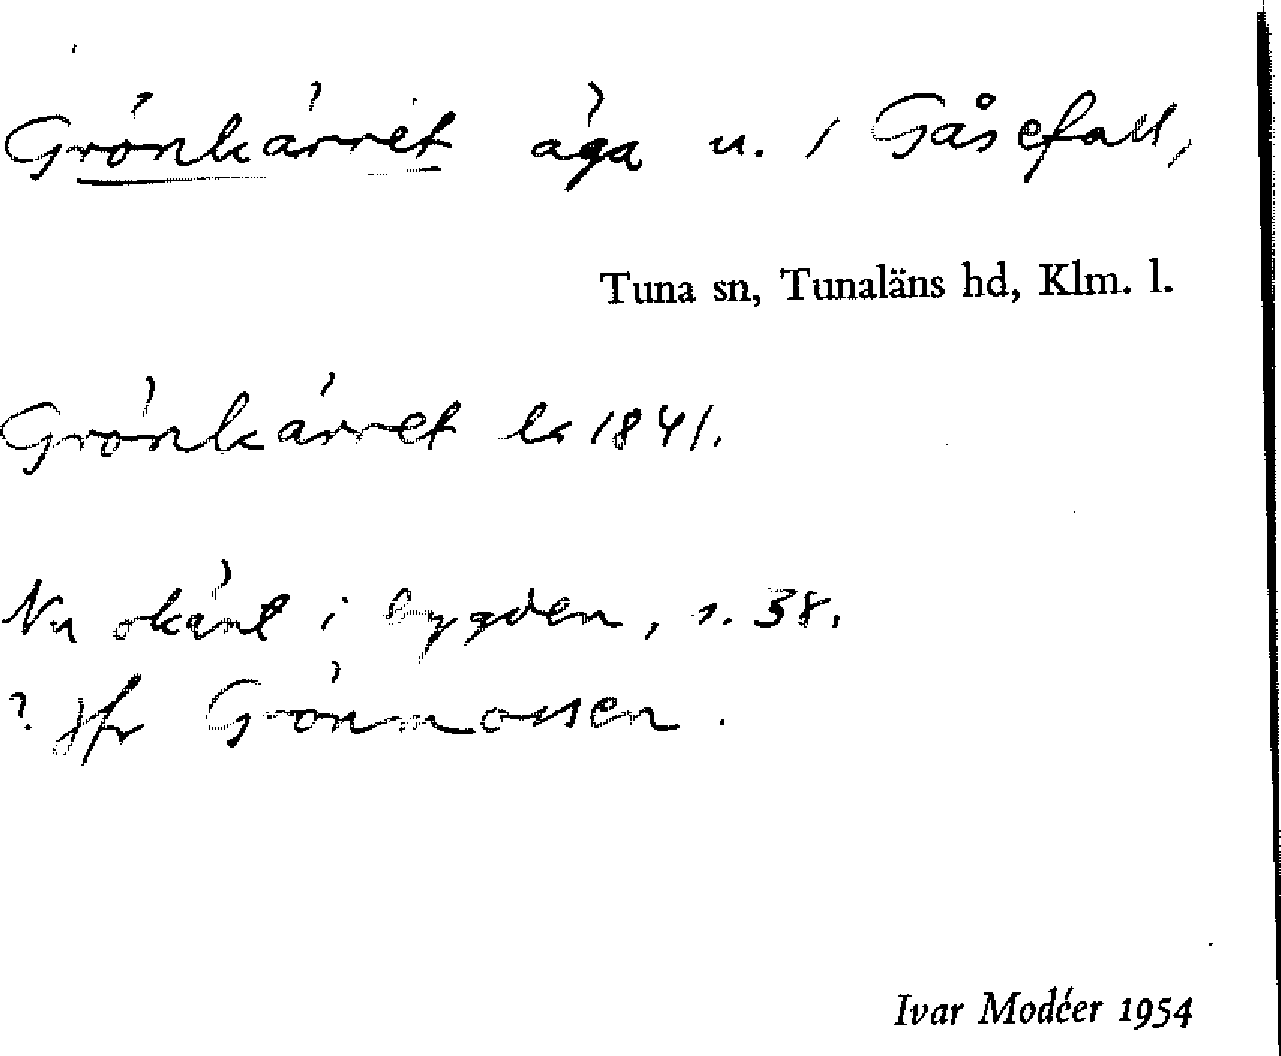 Grönkärret äga u. / Gåsefall,
Tuna sn, Tunaläns hd, Klm. l.
Grönkärret lk 1841.
Nu okänt i bygden, s. 38.
? Jfr Grönmossen.
Ivar Modéer 1954